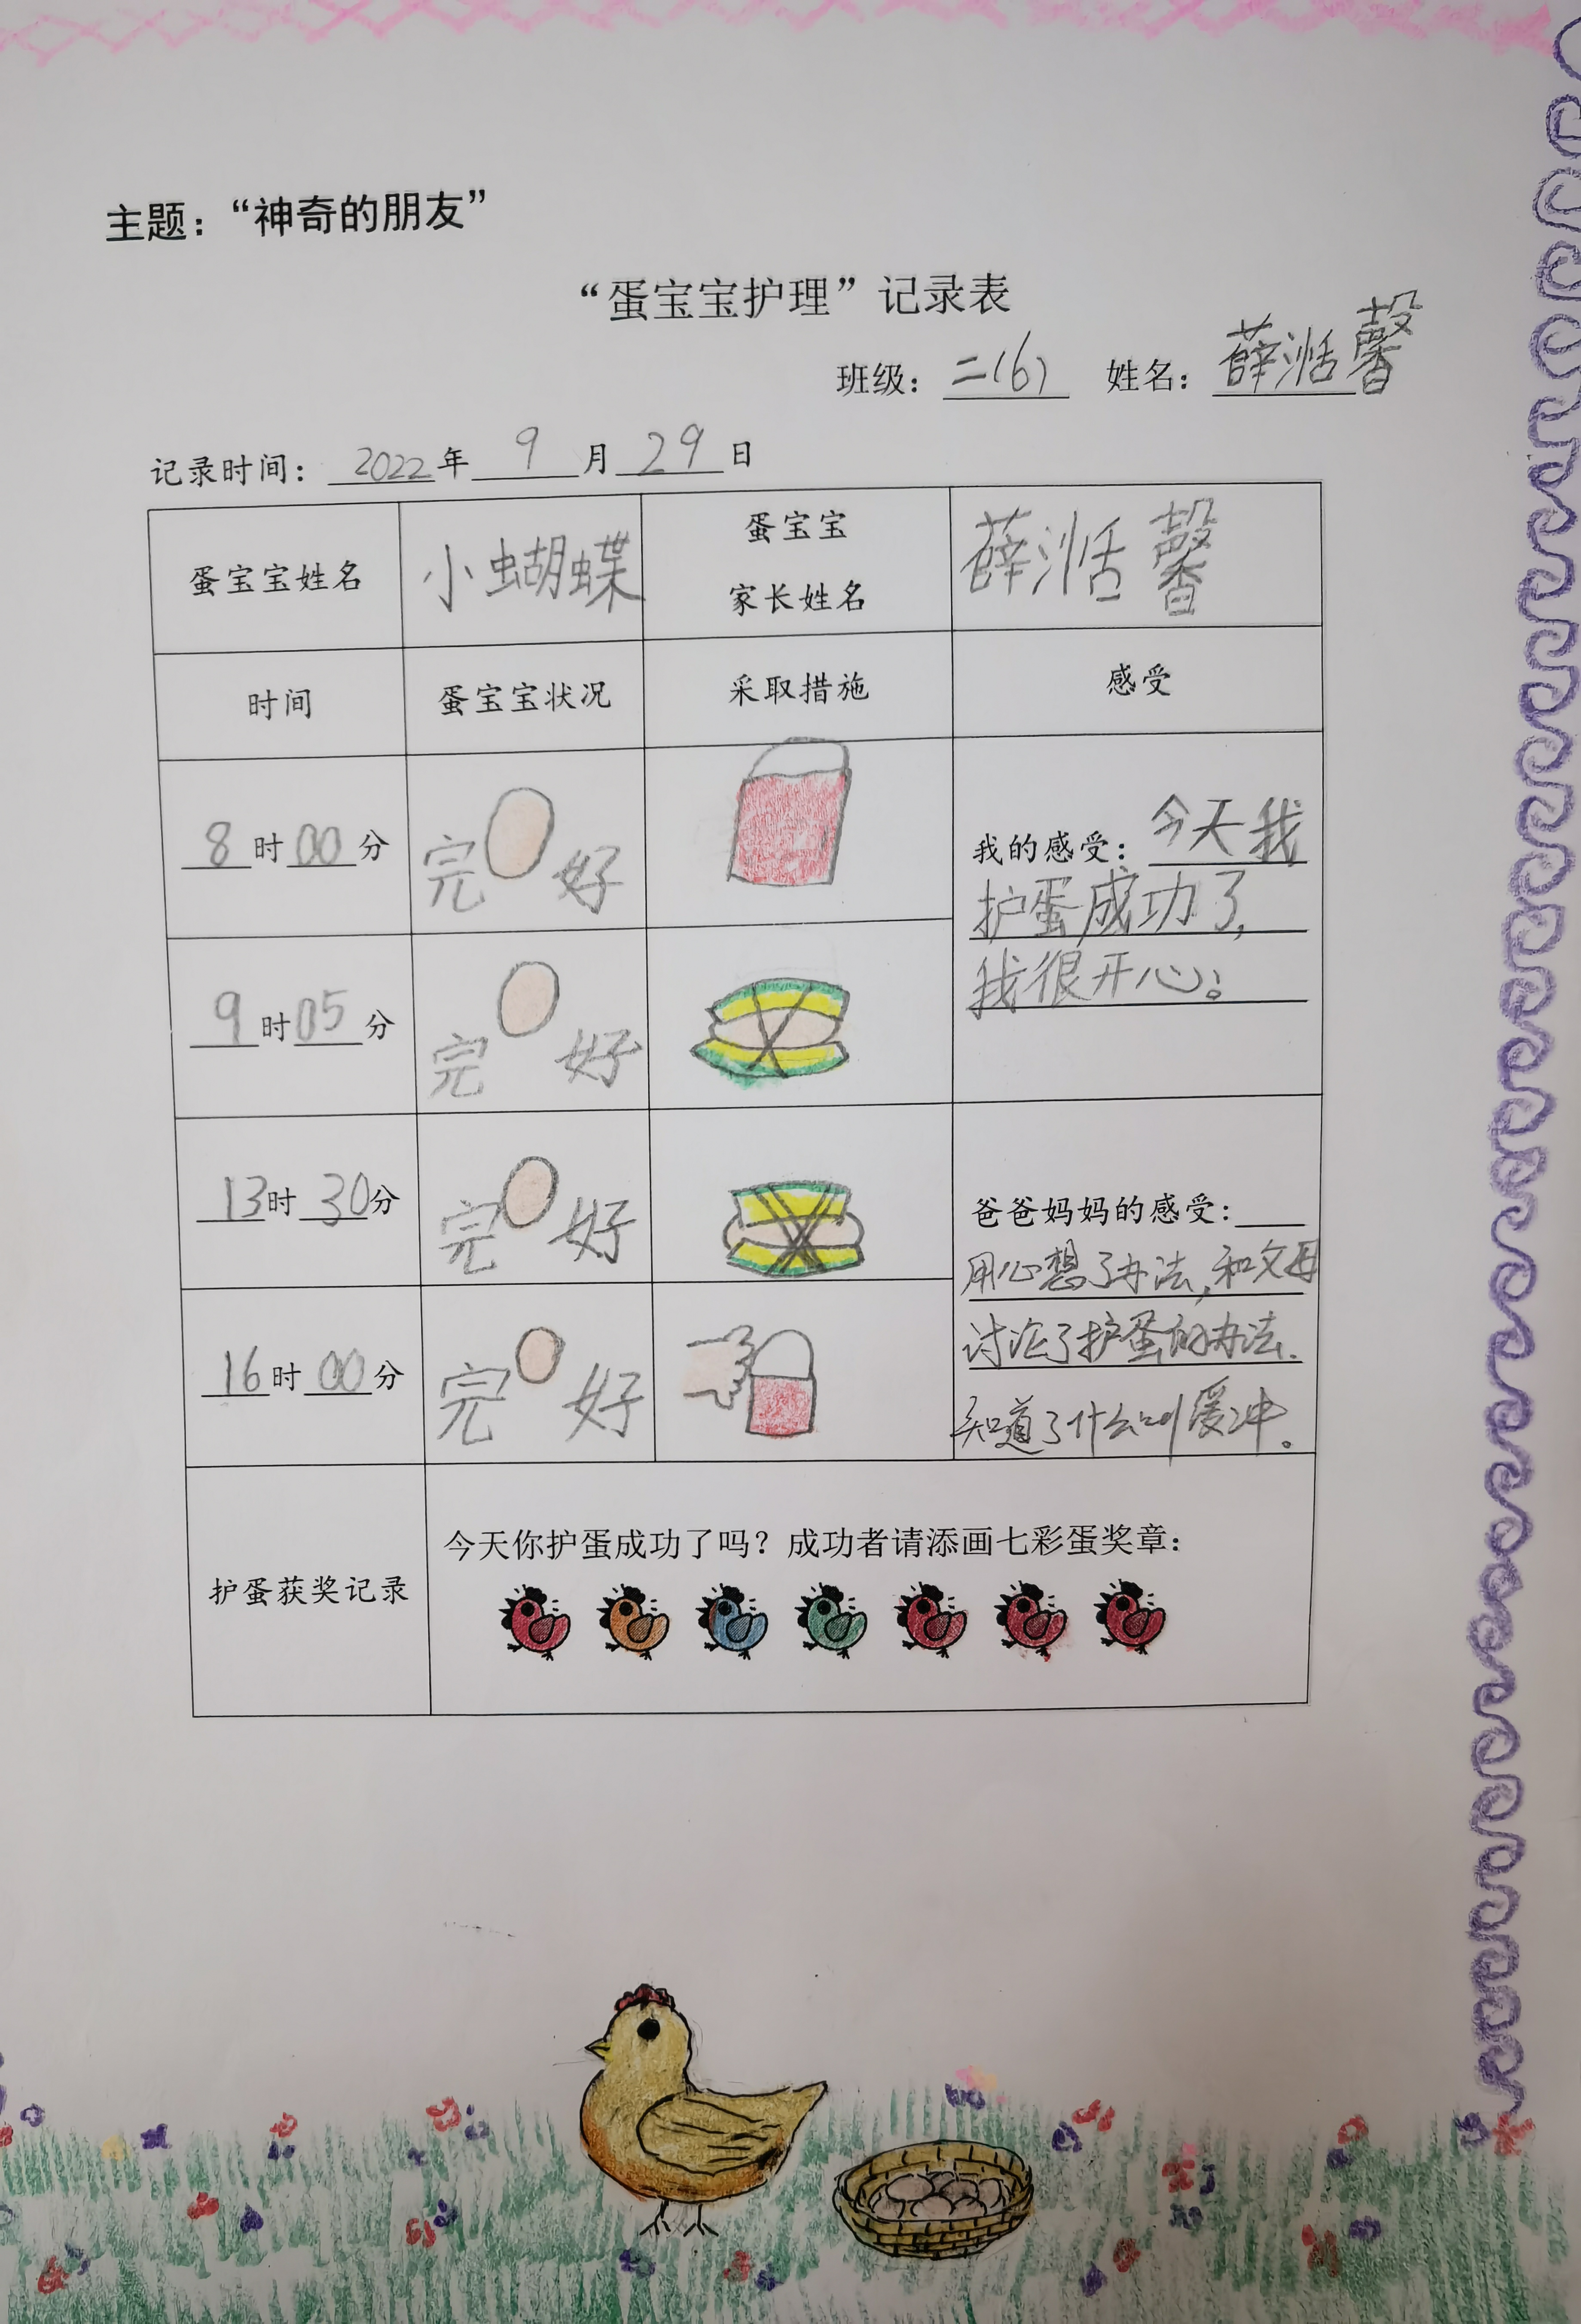 主题：“神奇的朋友”
“蛋宝宝护理”记录表
班级：二(6) 姓名：薛湉馨
记录时间：2022年9月29日
蛋宝宝姓名 小蝴蝶 蛋宝宝家长姓名 薛湉馨
时间 蛋宝宝状况 采取措施 感受
8时00分 完好
9时05分 完好
我的感受：今天我
护蛋成功了，
我很开心；
13时30分 完好
16时00分 完好
爸爸妈妈的感受：
用心想了办法，和父母
讨论了护蛋的办法.
知道了什么叫缓冲。
护蛋获奖记录
今天你护蛋成功了吗？成功者请添画七彩蛋奖章：